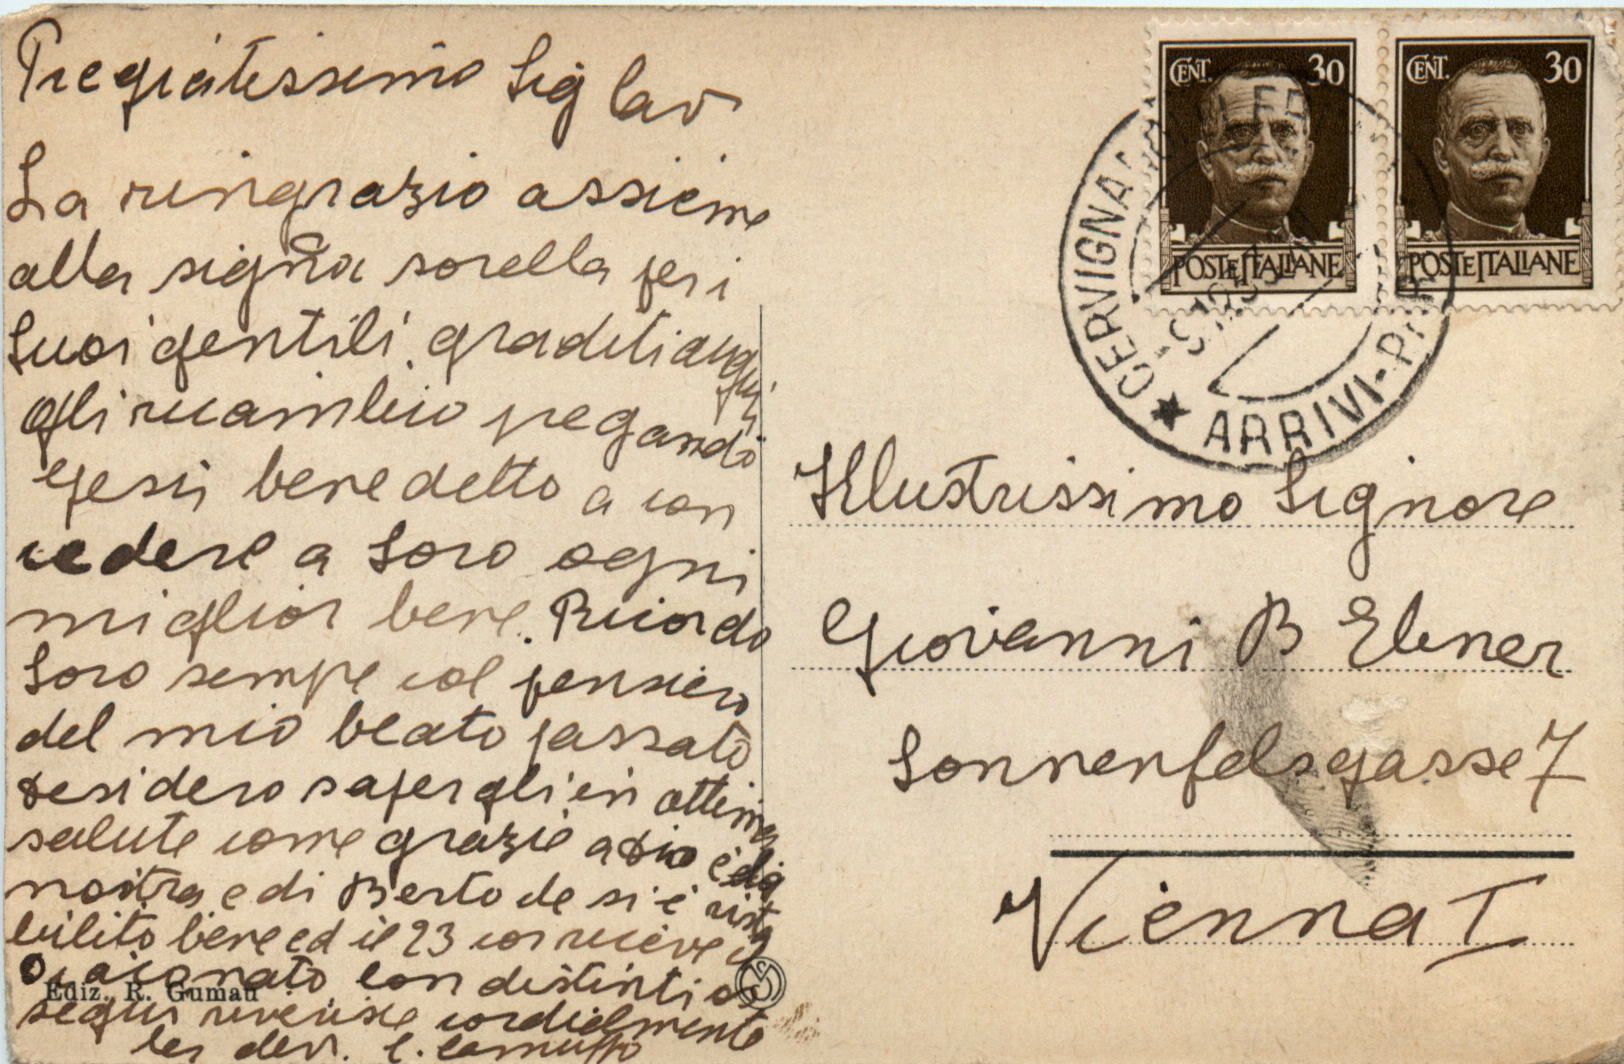 Pregiatissimo Sig Cav
La ringrazio assieme
alla sigña sorella per i
Suoi gentili graditi auguri
gli ricambio pregando
Gesù benedetto a con
cedere a Loro ogni
miglior bene. Ricordo
Loro sempre col pensiero
del mio beato passato
desidero saper gli in ottima
salute come grazie a Dio è la
nostra e di Berto che si è rista
bilito bene ed il 23 corr riceve il
Diaconato Con distinti os
sequi riverisce cordialmente
la dev.
Ediz. R. Guman
CENT. 30
POSTE ITALIANE
CENT. 30
POSTE ITALIANE
CERVIGNANO
ARRIVI-P
Illustrissimo Signore
Giovanni B Ebner
Sonnenfelsgasse 7
Vienna I